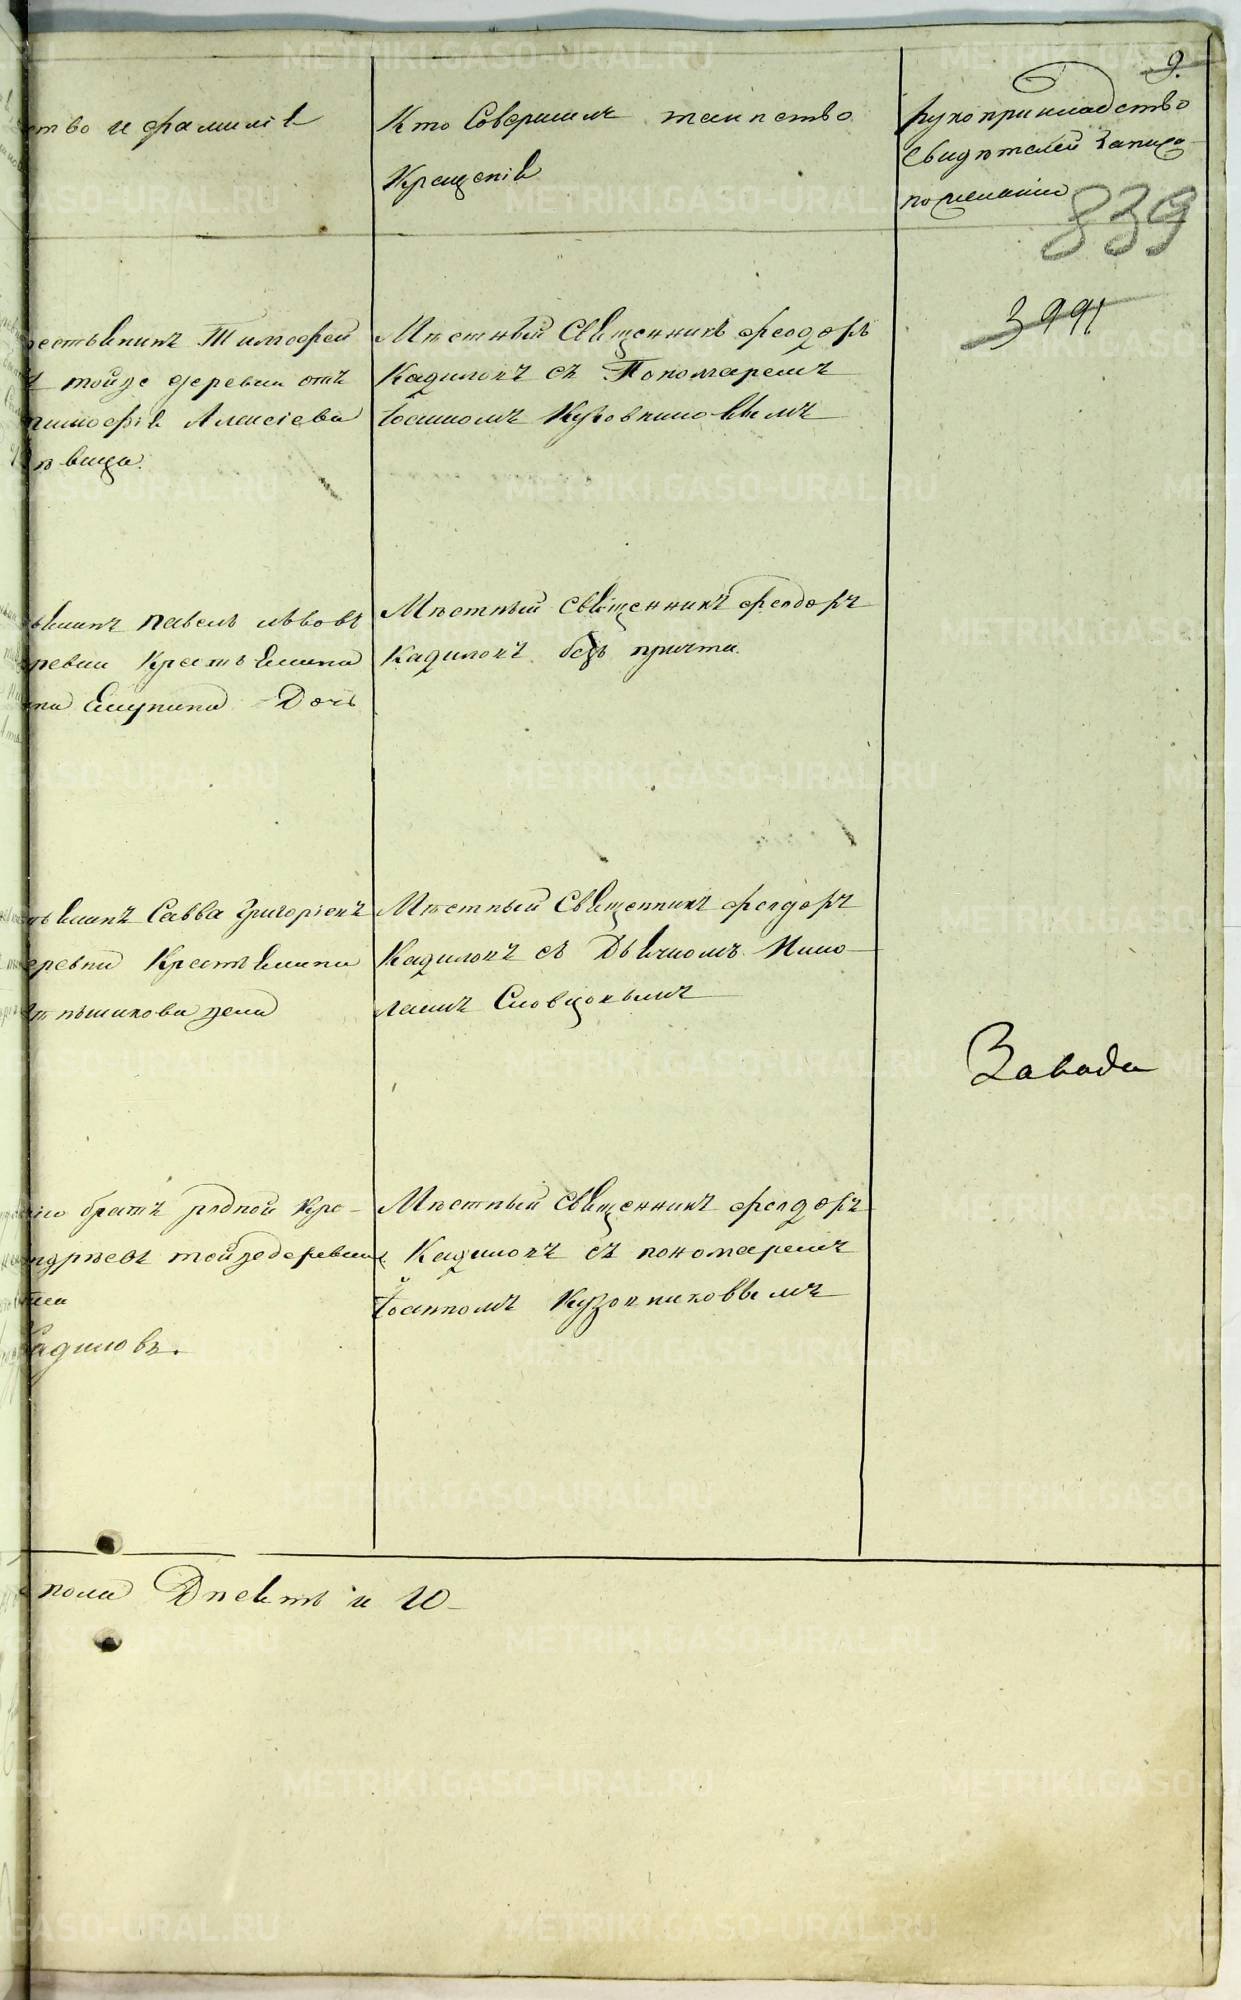 9.
ство и фамилія
Кто Совершилъ таинство
Крещенія
рукоприкладство
свидѣтелей записа
по желанію
839
3991
рестьянинъ Тимофей
тойже деревни отъ
Тимофѣя Алексѣева
вица.
Мѣстный Священникъ Феодоръ
Кадиловъ съ Пономаремъ
Іоанномъ Кузовниковымъ
ьянинъ Павелъ Львовъ
ревни Крестьянина
Дочь
Мѣстный Священникъ Феодоръ
Кадиловъ безъ причта.
тьянинъ Савва Григорьевъ
еревни Крестьянина
тникова жена
Мѣстный Священникъ Феодоръ
Кадиловъ съ Дьячкомъ Нико-
лаемъ Словцовымъ
Завода
братъ родной Кре-
ндрѣевъ тойже деревни
Кадиловъ.
Мѣстный Священникъ Феодоръ
Кадиловъ съ пономаремъ
Іоанномъ Кузовниковымъ
пола Девять и 10
METRIKI.GASO-URAL.RU